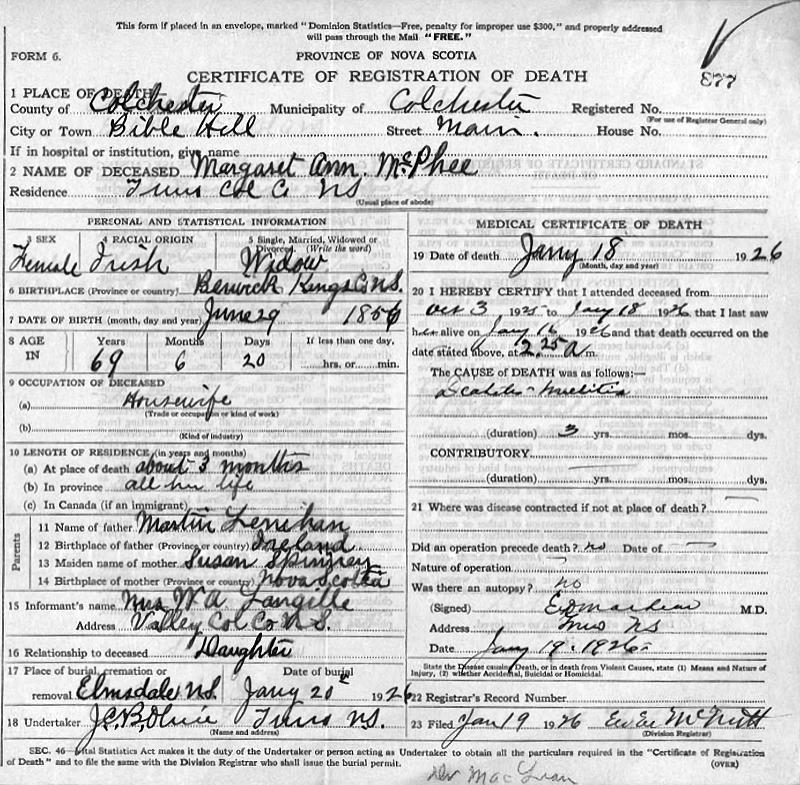 This form if placed in an envelope, marked "Dominion Statistics—Free, penalty for improper use $300," and properly addressed
will pass through the Mail "FREE."
FORM 6.
PROVINCE OF NOVA SCOTIA
877
CERTIFICATE OF REGISTRATION OF DEATH
1 PLACE OF DEATH—
County of Colchester Municipality of Colchester Registered No.
(For use of Registrar General only)
City or Town Bible Hill Street Main. House No.
If in hospital or institution, give name
2 NAME OF DECEASED Margaret Ann McPhee
Residence Truro Col Co NS
(Usual place of abode)
PERSONAL AND STATISTICAL INFORMATION
3 SEX 4 RACIAL ORIGIN 5 Single, Married, Widowed or Divorced. (Write the word)
Female Irish Widow
6 BIRTHPLACE (Province or country) Berwick Kings Co N.S.
7 DATE OF BIRTH (month, day and year) June 29 1856
8 AGE IN Years Months Days If less than one day,
69 6 20 hrs. or min.
9 OCCUPATION OF DECEASED
(a) Housewife
(Trade or occupation or kind of work)
(b)
(Kind of industry)
10 LENGTH OF RESIDENCE (in years and months)
(a) At place of death about 3 months
(b) In province all her life
(c) In Canada (if an immigrant)
Parents
11 Name of father Martin Lenihan
12 Birthplace of father (Province or country) Ireland
13 Maiden name of mother Susan Spinney
14 Birthplace of mother (Province or country) Nova Scotia
15 Informant's name Mrs W A Langille
Address Valley Col Co N.S.
16 Relationship to deceased Daughter
17 Place of burial, cremation or removal Date of burial
Elmsdale N.S. Jany 20th 1926
18 Undertaker Truro N.S.
(Name and address)
MEDICAL CERTIFICATE OF DEATH
19 Date of death Jany 18 1926
(Month, day and year)
20 I HEREBY CERTIFY that I attended deceased from
Oct 3 1925 to Jany 18 1926 that I last saw
her alive on Jany 16 1926 and that death occurred on
date stated above, at 2.25 a m.
The CAUSE of DEATH was as follows:—
(duration) 3 yrs. mos. dys.
CONTRIBUTORY
(duration) yrs. mos. dys.
21 Where was disease contracted if not at place of death?
Did an operation precede death? no Date of
Nature of operation
Was there an autopsy? no
(Signed) M.D.
Address Truro NS
Date Jany 19. 1926
State the Disease causing Death, or in death from Violent Causes, state (1) Means and Nature of
Injury, (2) whether Accidental, Suicidal or Homicidal.
22 Registrar's Record Number
23 Filed Jan 19 1926 McNutt
(Division Registrar)
SEC. 46—Vital Statistics Act makes it the duty of the Undertaker or person acting as Undertaker to obtain all the particulars required in the "Certificate of Registration
of Death" and to file the same with the Division Registrar who shall issue the burial permit. (OVER)
Dr MacLean